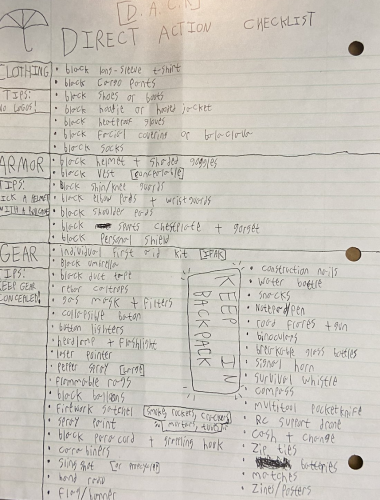 [D.A.C.K]
DIRECT ACTION CHECKLIST
CLOTHING
TIPS:
NO LOGOS!
• black long-sleeve t-shirt
• black cargo pants
• black shoes or boots
• black hoodie or hooded jacket
• black heatproof gloves
• black facial covering or balaclava
• black socks
ARMOR
TIPS:
PICK A HELMET
WITH A
• black helmet + shaded goggles
• black vest [concealable]
• black shin/knee guards
• black elbow pads + wrist guards
• black shoulder pads
• black sports chestplate + gorget
• black personal shield
GEAR
TIPS:
KEEP GEAR
CONCEALED!
• individual first aid kit [IFAK]
• black umbrella
• black duct tape
• rebar caltrops
• gas mask + filters
• collapsible baton
• butan lighters
• headlamp + flashlight
• laser pointer
• pepper spray [large]
• flammable rags
• black balloons
• firework satchel [smoke, rockets, crackers, mortars, tube]
• spray paint
• black paracord + grappling hook
• carabiners
• slingshot [or
• hand
• flag/banner
KEEP IN BACKPACK
• construction nails
• water bottle
• snacks
• Notepad/pen
• road flares + gun
• binoculars
• breakable glass bottles
• signal horn
• survival whistle
• compass
• multitool pocketknife
• RC support drone
• cash + change
• zip ties
• batteries
• matches
• zines/posters